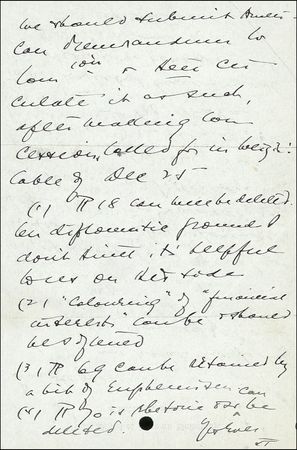 we should submit Ameri
can Memorandum to
& then cir
culate it as such,
after making con
cession called for in
cable of Dec 25
(1) ¶ 18 can be deleted.
On diplomatic ground I
don't think it's helpful
to us on this side
(2) "Colouring" of "financial
interests" can be & should
be softened
(3) ¶ 69 can be retained by
a bit of Euphemism
(4) ¶ 70 is rhetoric & can be
deleted.